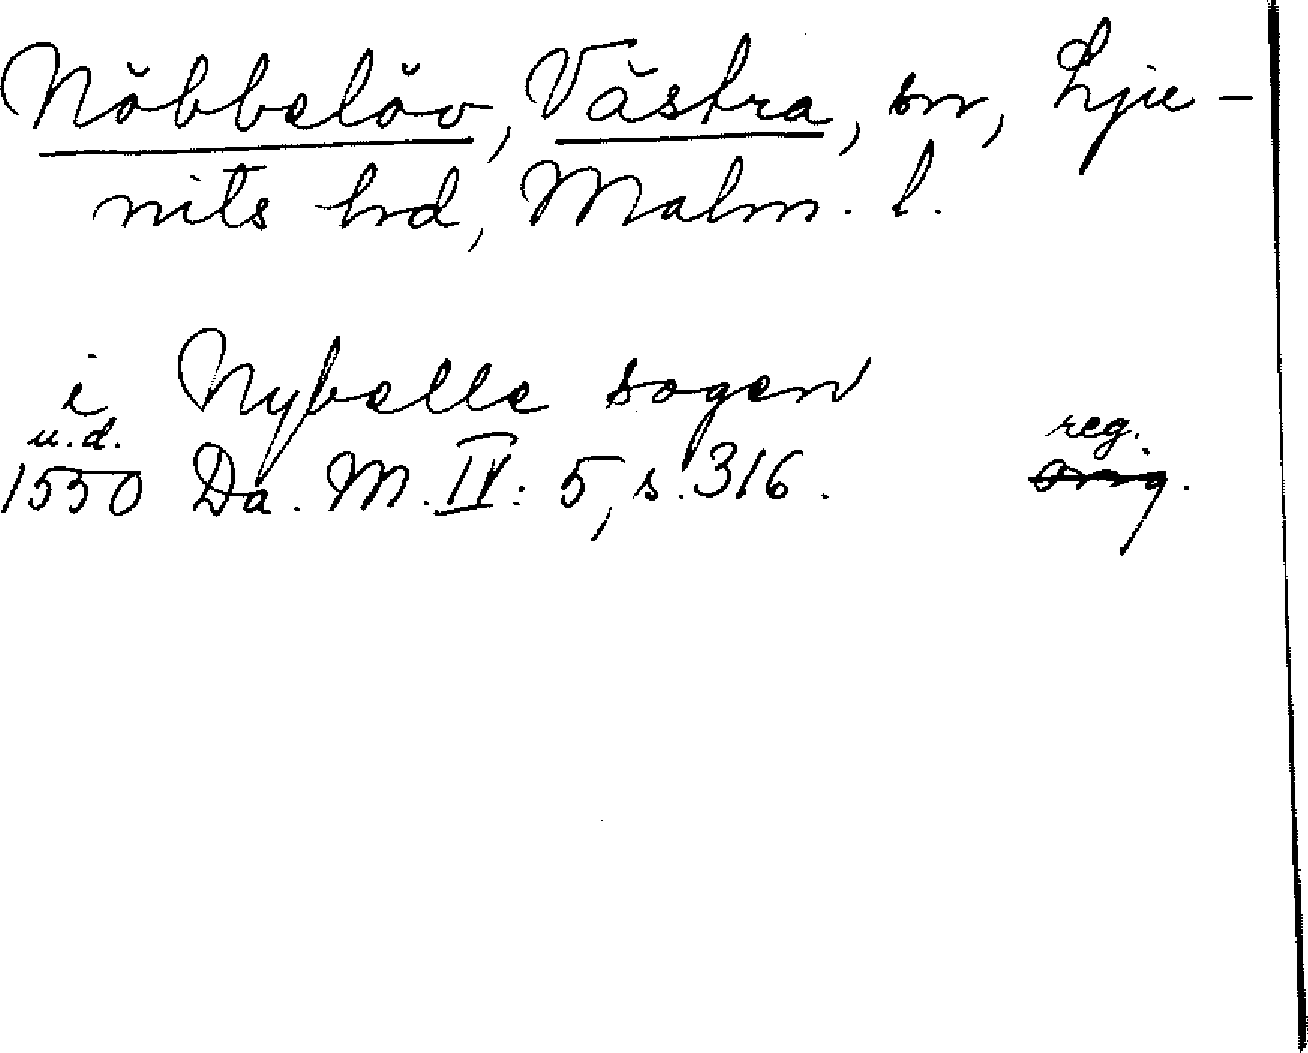 Nöbbelöv, Västra, sn, Lju-
nits hrd, Malm. l.
i Nybelle sogen
u.d. reg.
1550 Da. M. IV: 5, s. 316. orig.